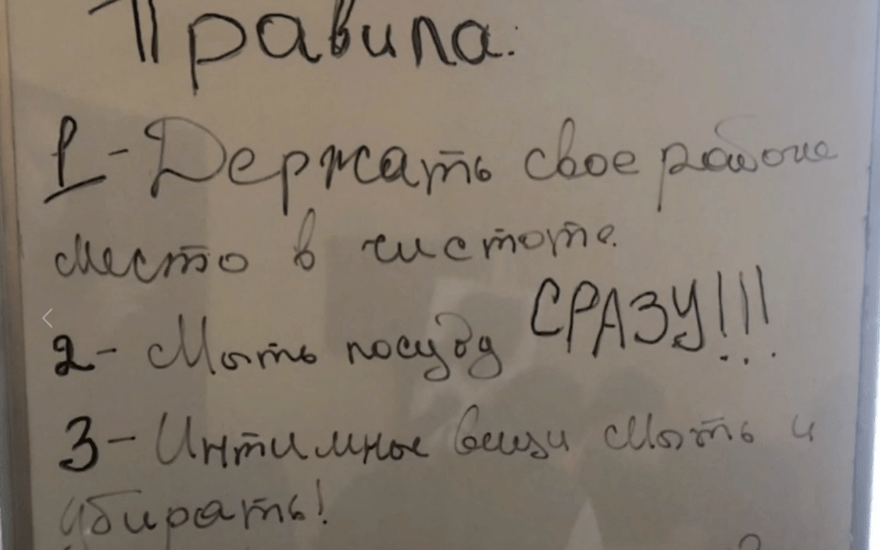 Правила:
1- Держать свое рабоче
место в чистоте.
2- Мыть посуду СРАЗУ!!!
3- Интимные вещи мыть и
убирать!